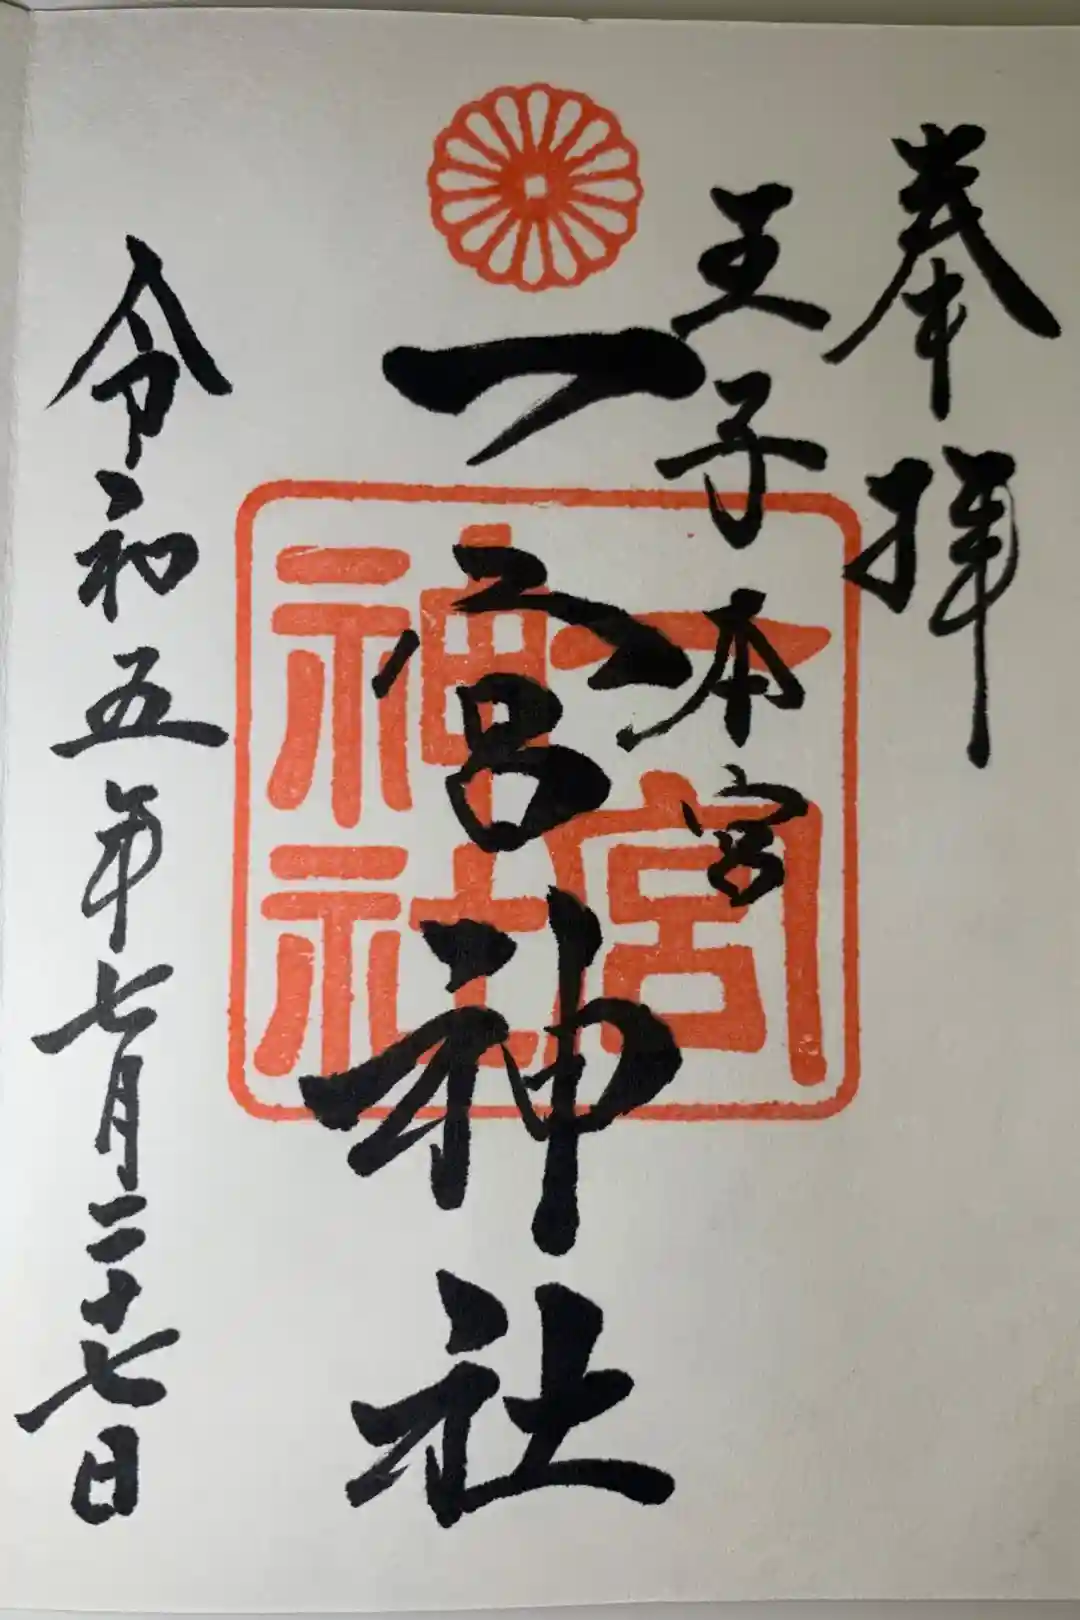 奉拝
王子本宮
一宮神社
一宮神社
令和五年七月二十七日